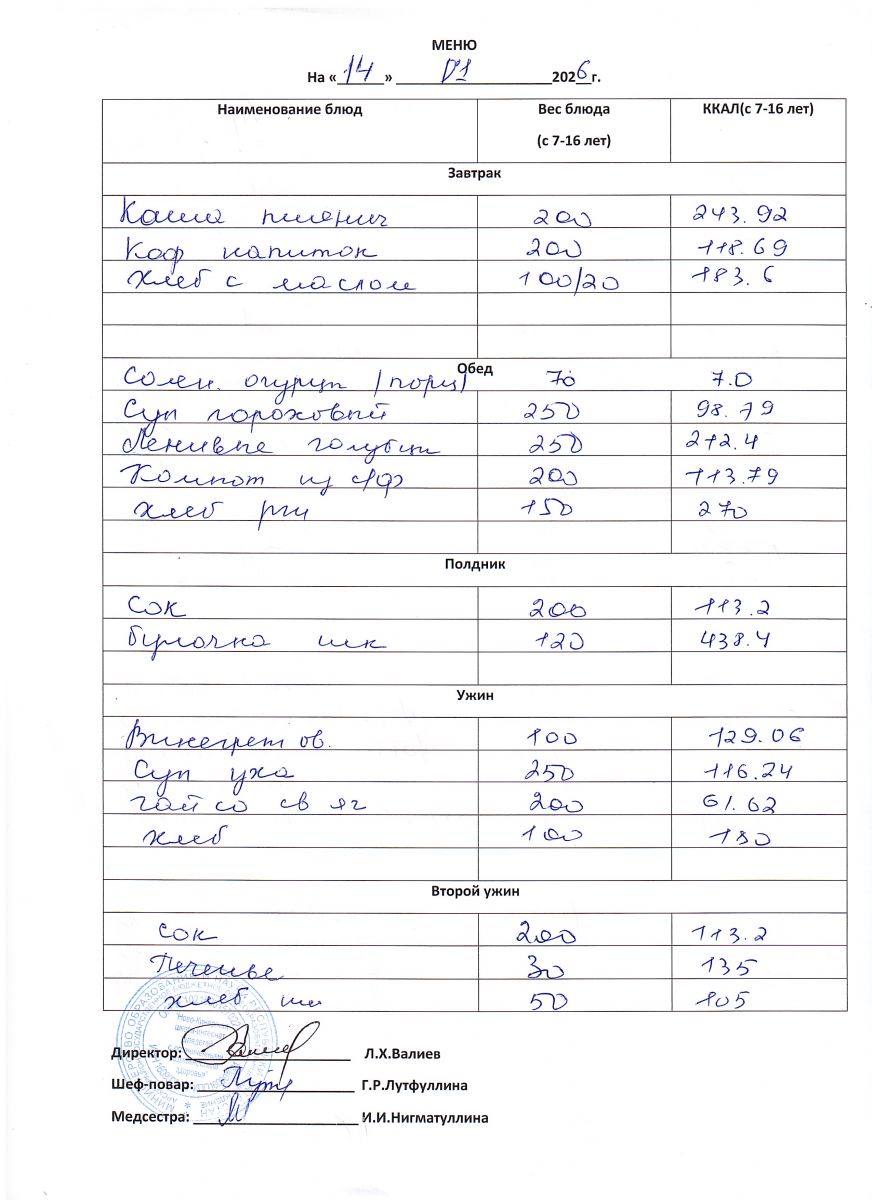 МЕНЮ
На « 14 » 01 2026 г.
Наименование блюд Вес блюда (с 7-16 лет) ККАЛ(с 7-16 лет)
Завтрак
Каша пшенич 200 243.92
Коф напиток 200 118.69
Хлеб с маслом 100/20 183.6
Обед
Солен. огурцы /порц/ 70 7.0
Суп гороховый 250 98.79
Ленивые голубцы 250 212.4
Компот из с/ф 200 113.79
Хлеб рж 150 270
Полдник
Сок 200 113.2
Булочка шк 120 438.4
Ужин
Винегрет ов. 100 129.06
Суп уха 250 116.24
Чай со св яг 200 61.62
Хлеб 100 180
Второй ужин
Сок 200 113.2
Печенье 30 135
Хлеб 50 105
Директор: Л.Х.Валиев
Шеф-повар: Г.Р.Лутфуллина
Медсестра: И.И.Нигматуллина